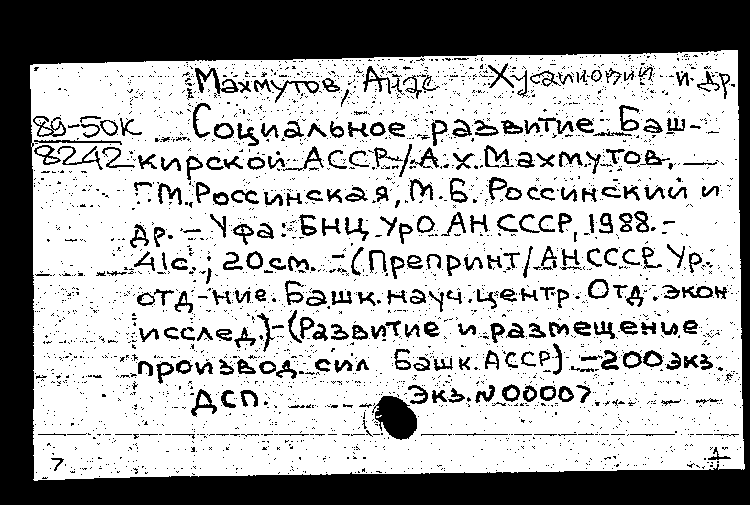 Махмутов, Анас Хусаинович и др.
89-50К Социальное развитие Баш-
8242 кирской АССР / А.Х. Махмутов,
Г.М. Россинская, М.Б. Россинский и
др. - Уфа: БНЦ УрО АН СССР, 1988. -
41с.; 20 см. - (Препринт / АН СССР Ур.
отд-ние. Башк. науч. центр. Отд. экон
исслед.) - (Развитие и размещение
производ. сил Башк. АССР) - 200 экз.
ДСП. Экз. N 00007
7